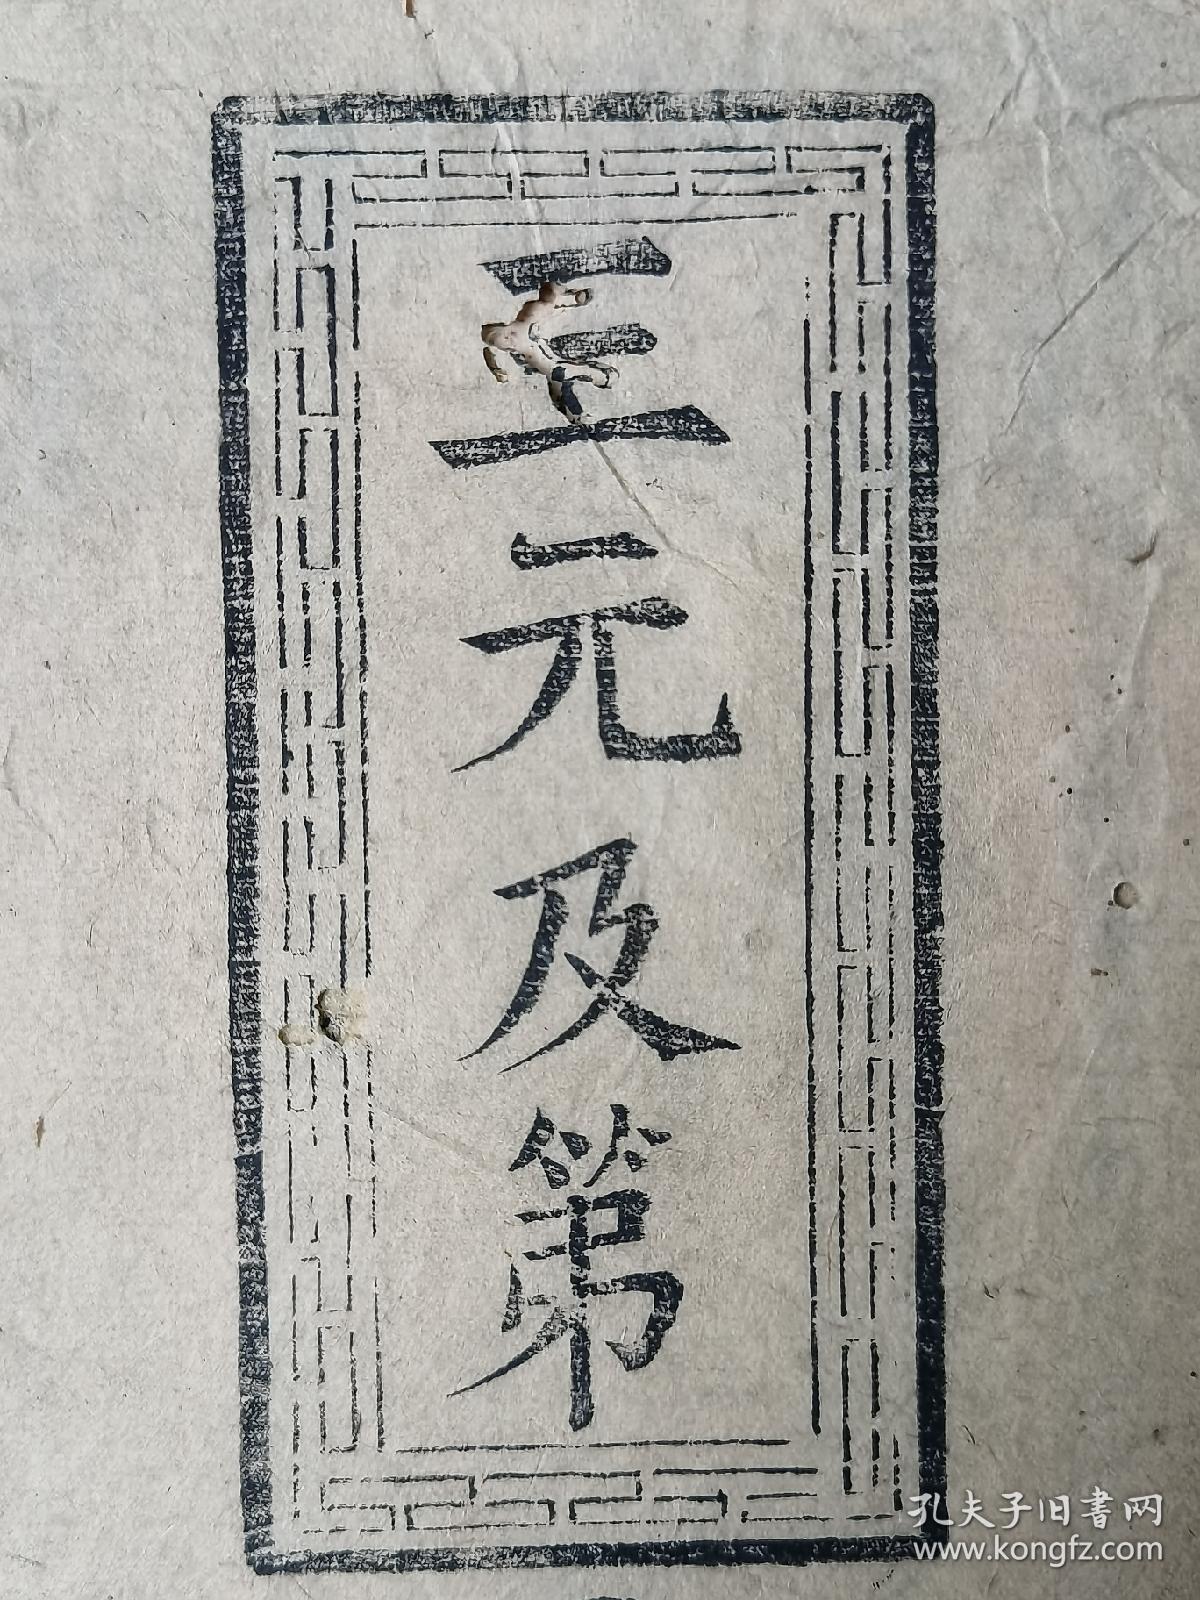 三元及第
孔夫子旧書网
www.kongfz.com